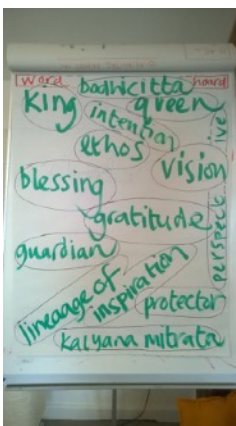 Word hoard
bodhicitta
king
green
intention
ethos
vision
blessing
gratitude
perspective
guardian
lineage of
inspiration
protector
kalyana mitrata